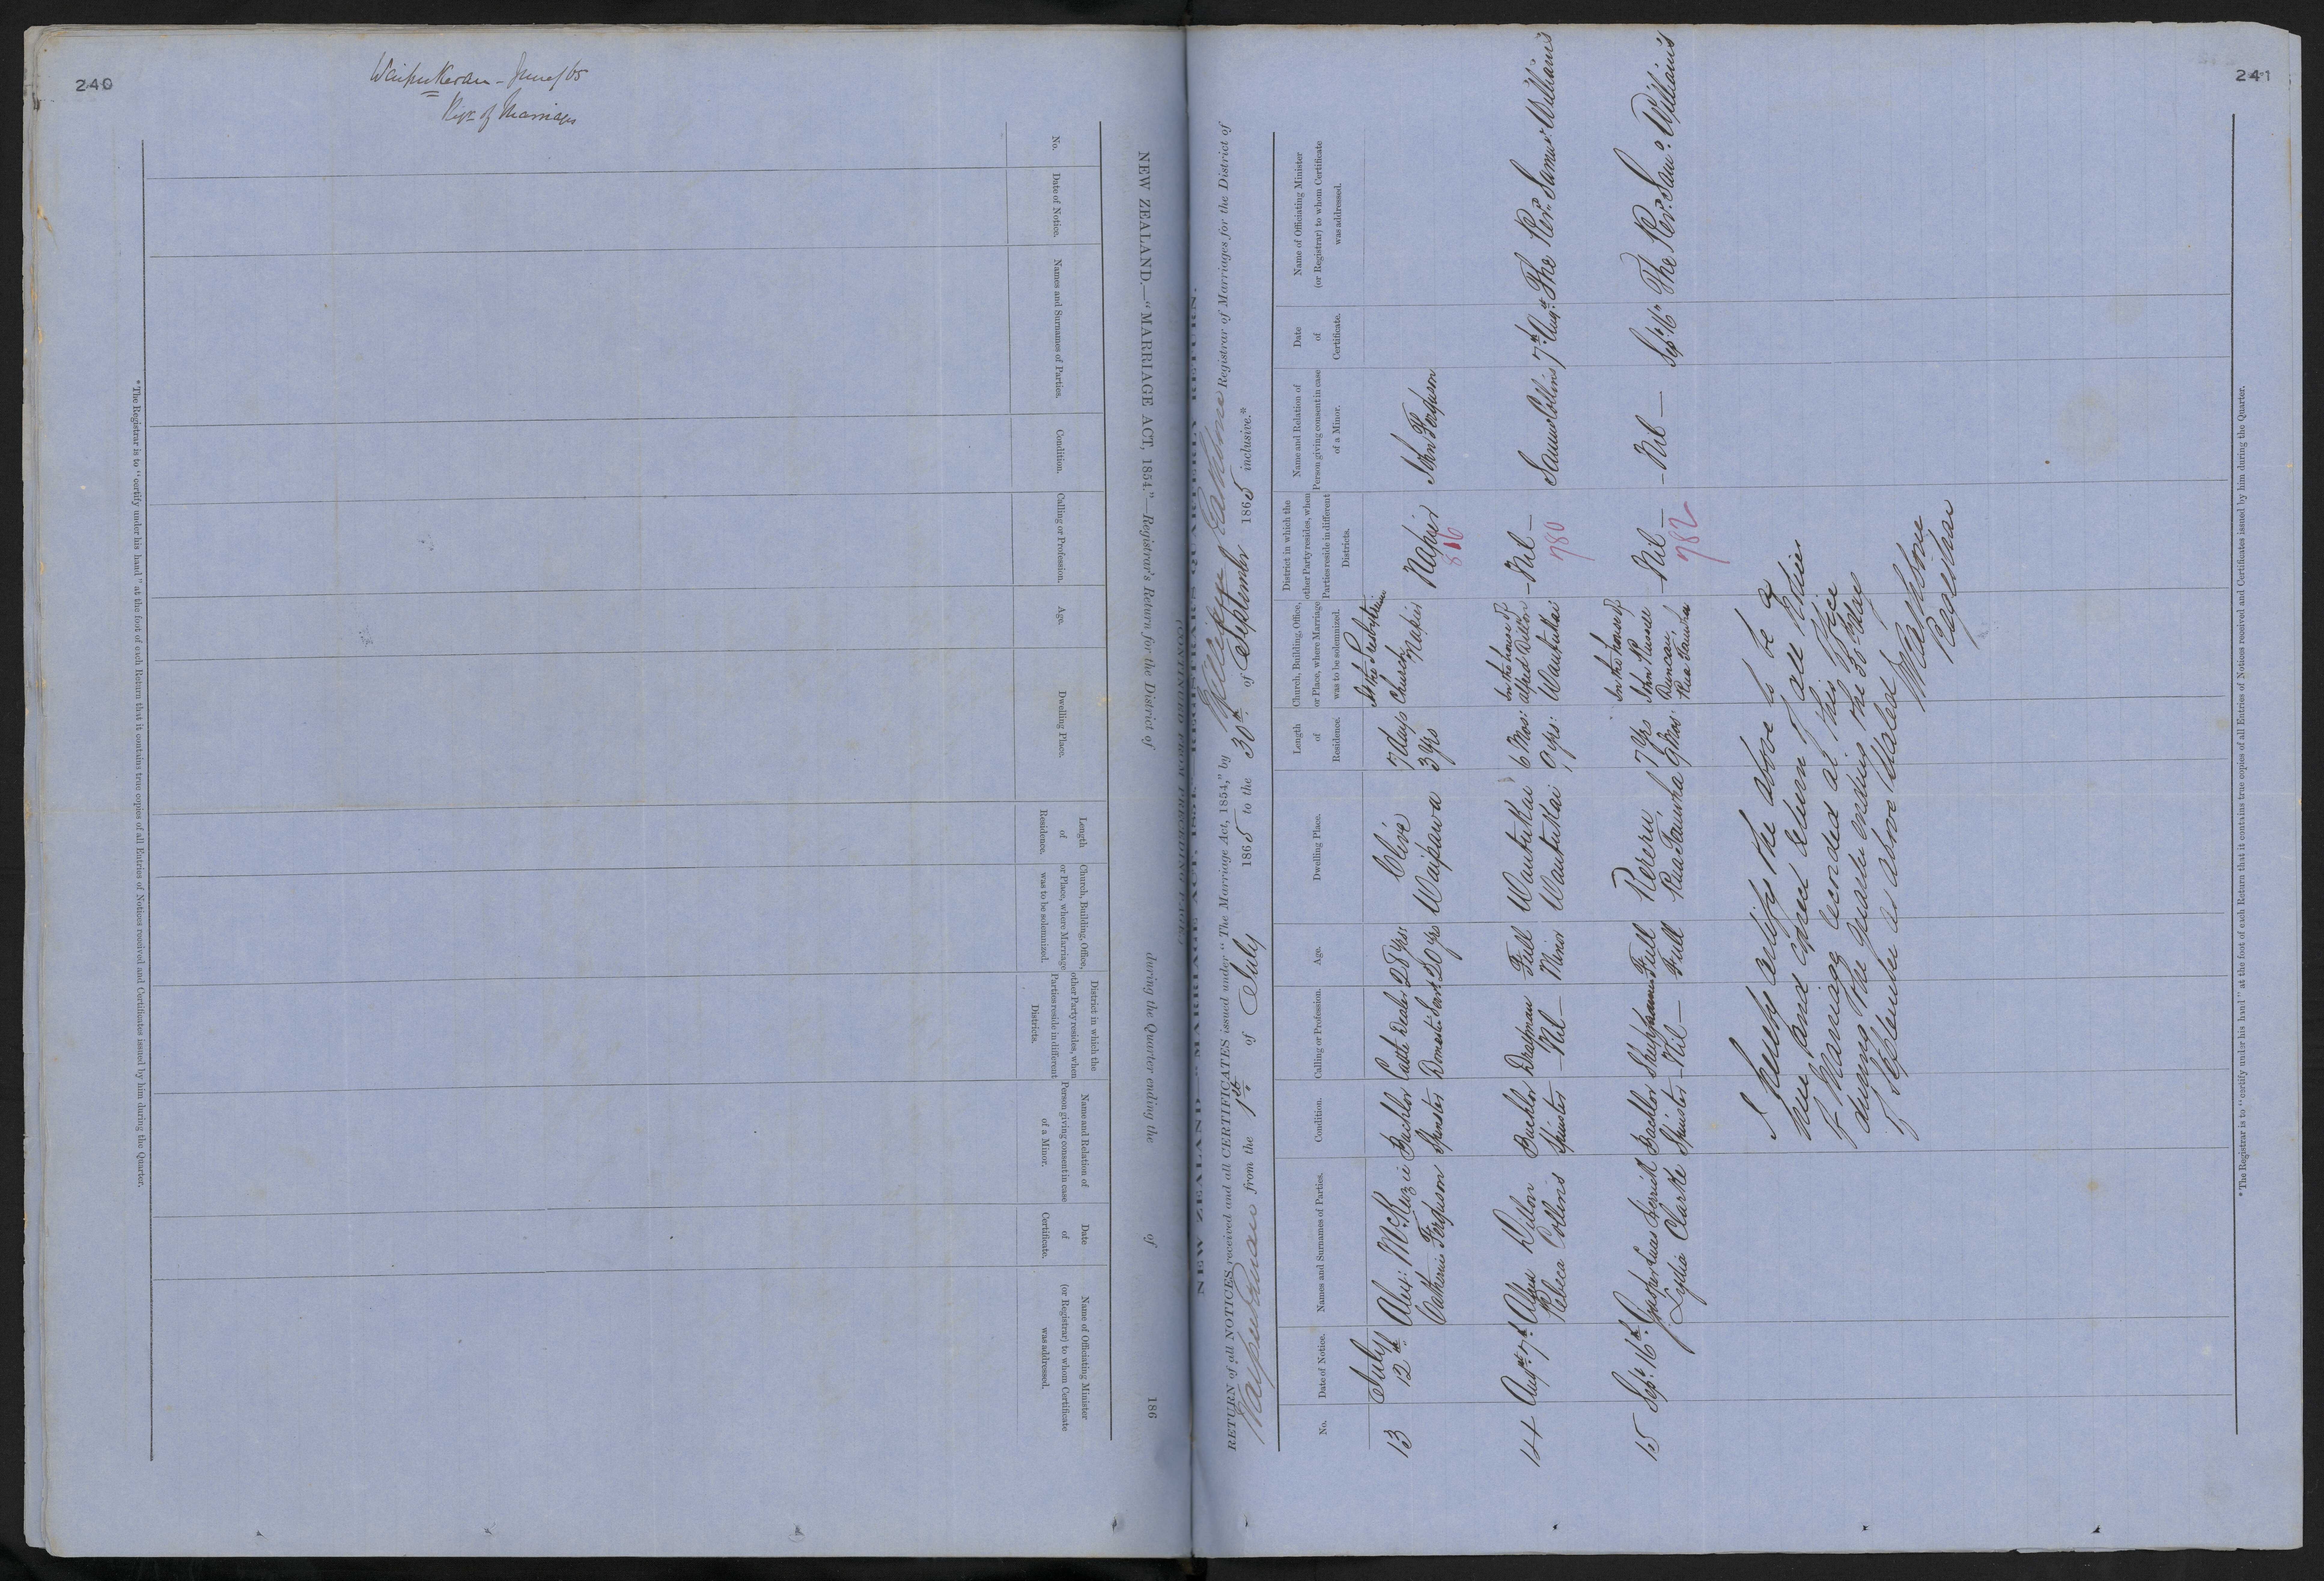 240
Waipukurau - June/65
Regr of Marriages
No.
Date of Notice.
Names and Surnames of Parties.
Condition.
Calling or Profession.
Age.
Dwelling Place.
Length
of
Residence.
Church, Building, Office,
or Place, where Marriage
was to be solemnized.
District in which the
other Party resides, when
Parties reside in different
Districts.
Name and Relation of
Person giving consent in case
of a Minor.
Date
of
Certificate.
Name of Officiating Minister
(or Registrar) to whom Certificate
was addressed.
NEW ZEALAND.—"MARRIAGE ACT, 1854."—Registrar's Return for the District of during the Quarter ending the of 186
*The Registrar is to "certify under his hand" at the foot of each Return that it contains true copies of all Entries of Notices received and Certificates issued by him during the Quarter.
241
NEW ZEALAND—"MARRIAGE ACT, 1854."—REGISTRAR'S QUARTERLY RETURN.
(CONTINUED FROM PRECEDING PAGE)
RETURN of all NOTICES received and all CERTIFICATES issued under "The Marriage Act, 1854," by William Rathbone Registrar of Marriages for the District of
Waipukurau from the 1st of July 1865 to the 30th of September 1865 inclusive.*
No.
Date of Notice.
Names and Surnames of Parties.
Condition.
Calling or Profession.
Age.
Dwelling Place.
Length
of
Residence.
Church, Building, Office,
or Place, where Marriage
was to be solemnized.
District in which the
other Party resides, when
Parties reside in different
Districts.
Name and Relation of
Person giving consent in case
of a Minor.
Date
of
Certificate.
Name of Officiating Minister
(or Registrar) to whom Certificate
was addressed.
13 July 12th Alexr: McKenzie Bachlor Cattle Dealer 28 yrs: Clive 7 days At the Presbyterian Church Napier
Catherine Ferguson Spinster Domestic Servt 20 yrs Waipawa 3 yrs Napier John Ferguson
816
14 Augst 7th Alfred Dillon Bachlor Draftman Full Wautukai 6 Mos: In the house of Alfred Dillon Wautukai - Nil - 7th Augst The Revd. Samuel Williams
Rebeca Collins Spinster - Nil - Minor Wautukai 9 yrs: Samuel Collins
780
15 Sepr. 16th Herrick Bachlor Sheepfarmer Full Rereru 7 Yrs In the house of John Russell Duncan, Rua Tanuha - Nil - - Nil - Sepr. 16th The Revd. Saml. Williams
Lydia Clarke Spinster - Nil - Full Rua Taniwha 9 Mos:
782
I hereby certify the above to be a
true and correct return of all Notices
of Marriage recorded at this Office
during the quarter ending the 30th day
of September as above stated
W Rathbone
Registrar
*The Registrar is to "certify under his hand" at the foot of each Return that it contains true copies of all Entries of Notices received and Certificates issued by him during the Quarter.